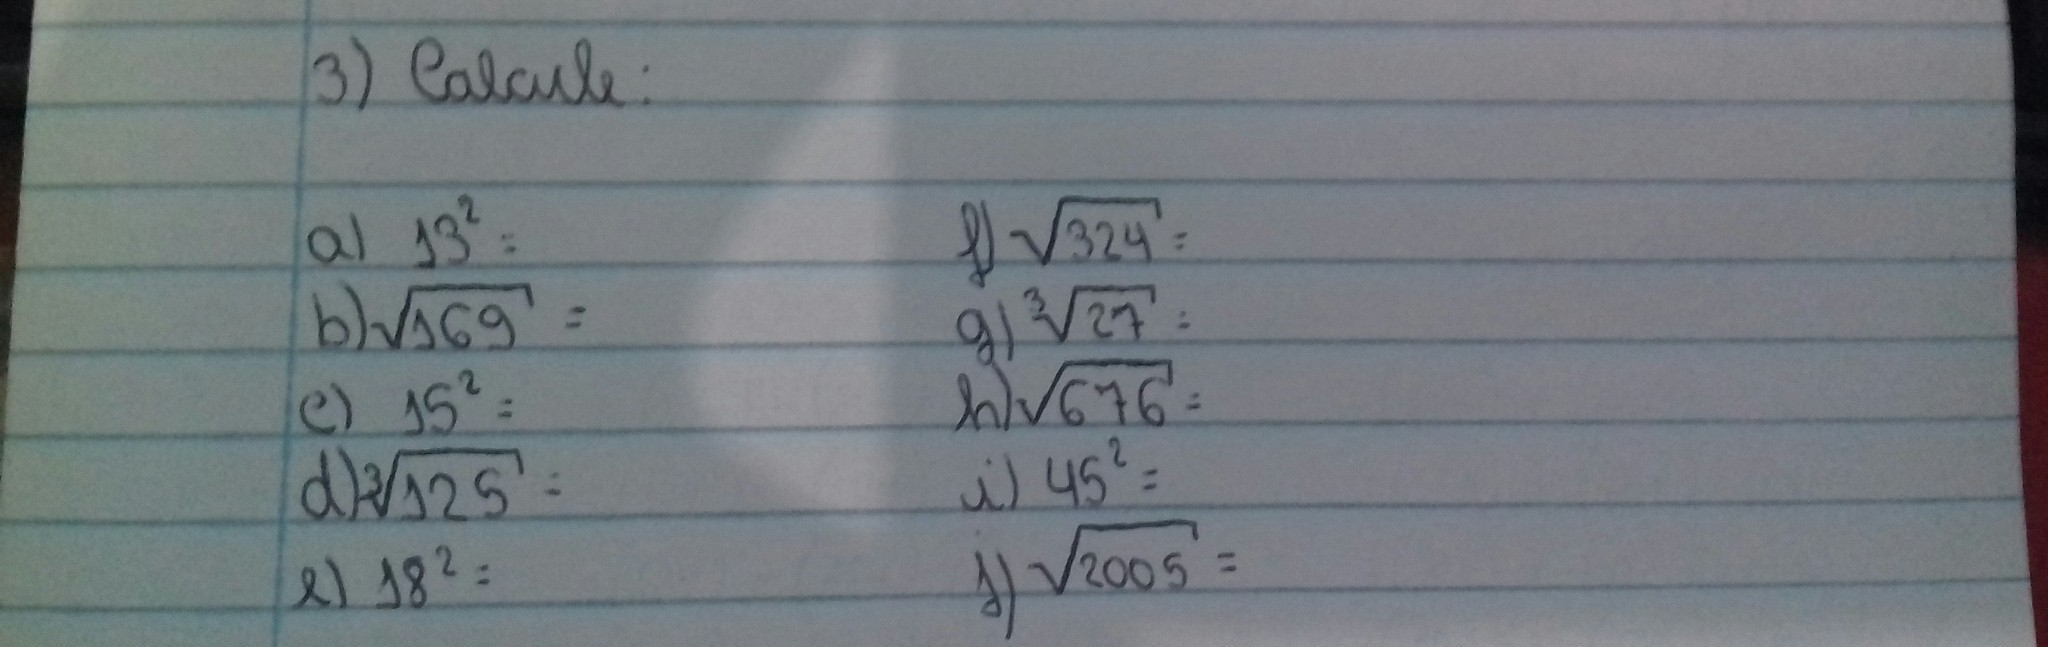 3) Calcule:
a) 13² =
b) √169 =
c) 15² =
d) ³√125 =
e) 18² =
f) √324 =
g) ³√27 =
h) √676 =
i) 45² =
j) √2005 =